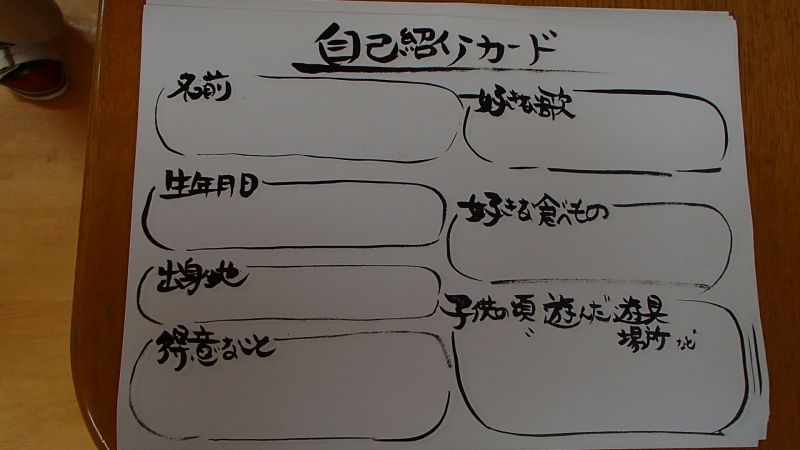 自己紹介カード
名前
生年月日
出身地
得意なこと
好きな歌
好きな食べもの
子供の頃 遊んだ 遊具
場所 など